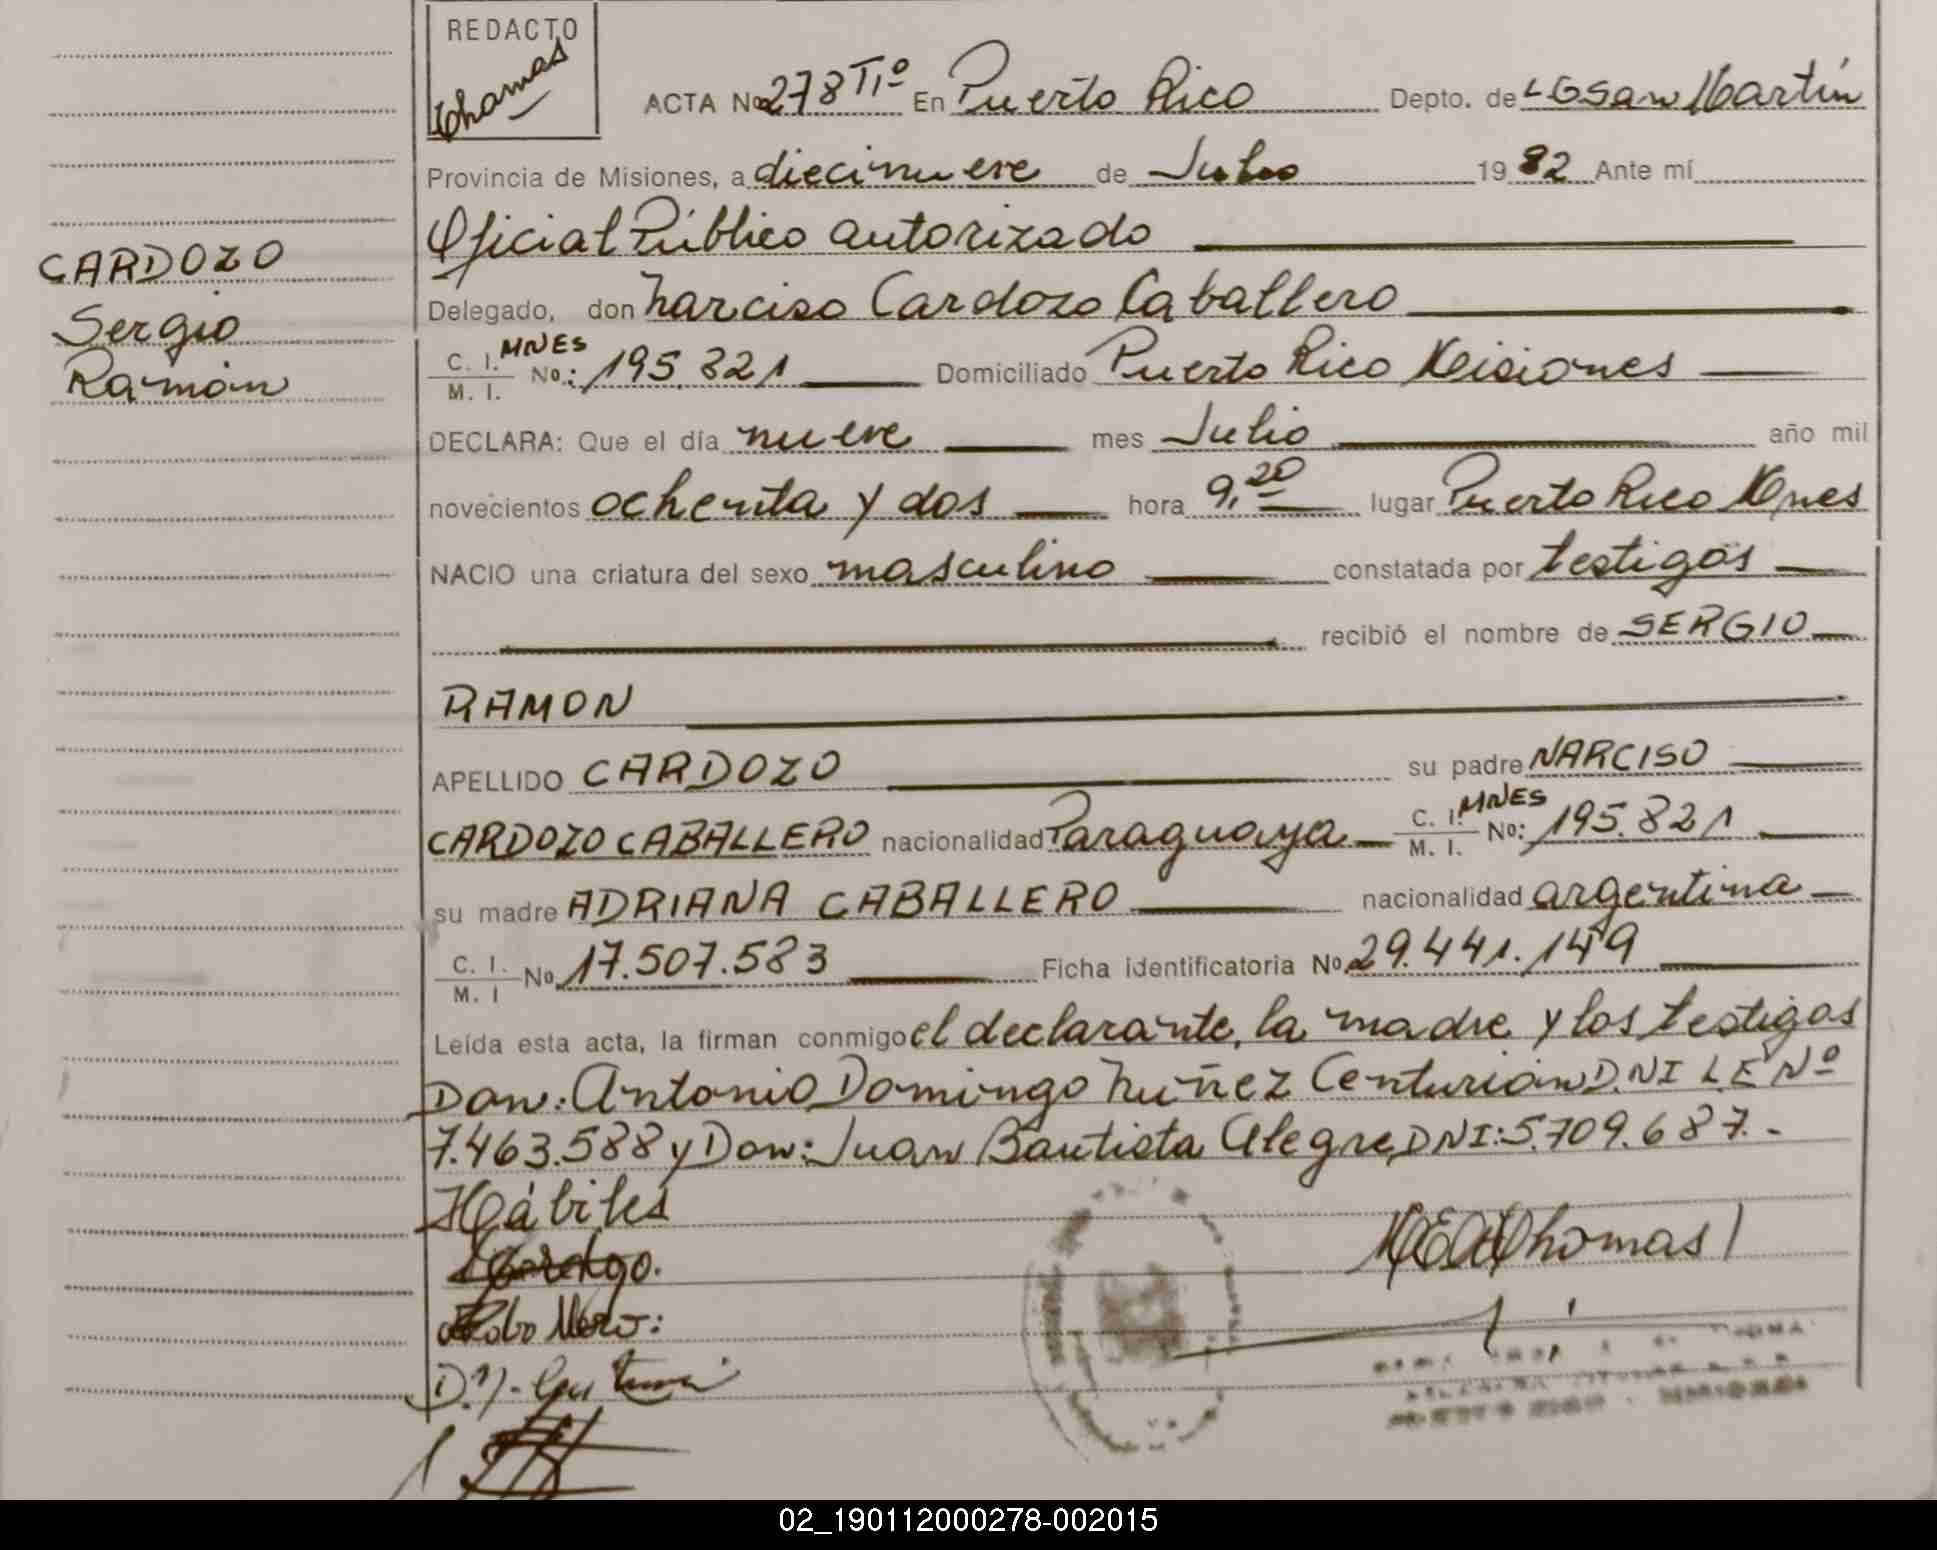 REDACTO
Thomas
ACTA No 278 Tº En Puerto Rico Depto. de LGSan Martín
Provincia de Misiones, a diecinueve de Julio 19 82 Ante mí
Oficial Público autorizado
CARDOZO
Sergio
Ramón
Delegado, don Narciso Cardozo Caballero
C. I. MNES
M. I. No.: 195.821 Domiciliado Puerto Rico Misiones
DECLARA: Que el día nueve mes Julio año mil
novecientos ochenta y dos hora 9,20 lugar Puerto Rico Mnes
NACIO una criatura del sexo masculino constatada por testigos
recibió el nombre de SERGIO
RAMON
APELLIDO CARDOZO su padre NARCISO
CARDOZO CABALLERO nacionalidad Paraguaya C. I. MNES M. I. No: 195.821
su madre ADRIANA CABALLERO nacionalidad argentina
C. I. M. I No 17.507.583 Ficha identificatoria No 29.441.149
Leída esta acta, la firman conmigo el declarante, la madre y los testigos
Don: Antonio Domingo Núñez Centurión D.NI L.E Nº
7.463.588 y Don: Juan Bautista Alegre, DNI: 5.709.687.-
Hábiles
Thomas
02_190112000278-002015